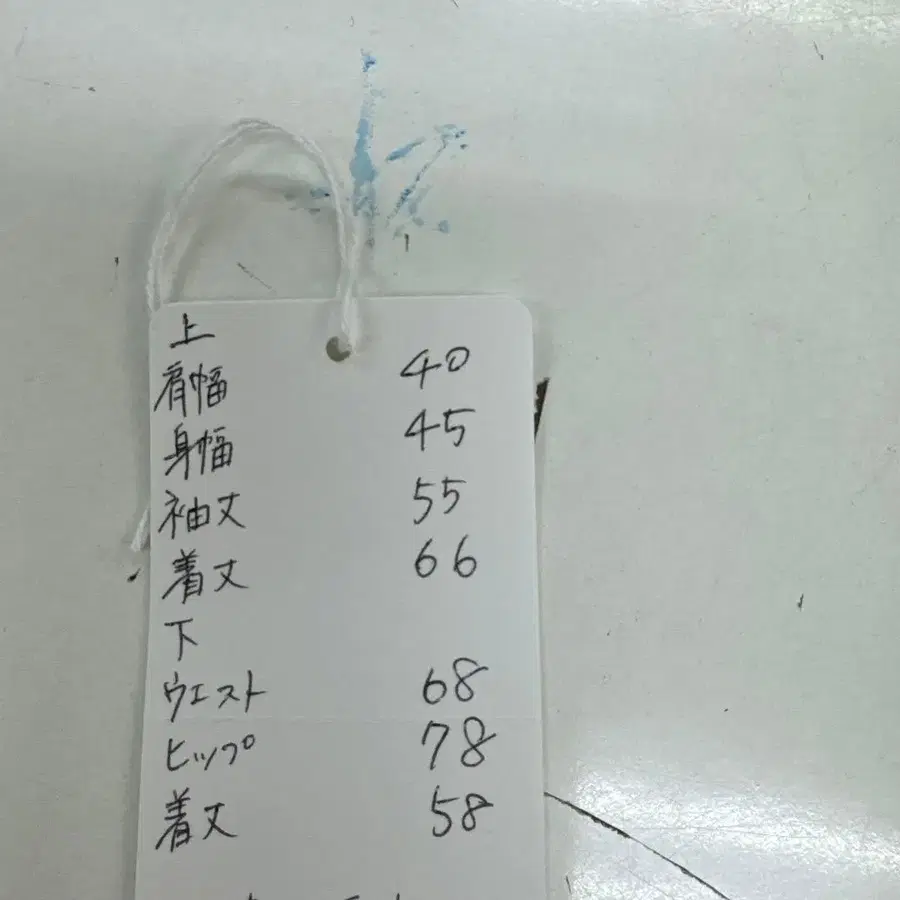 上
肩幅 40
身幅 45
袖丈 55
着丈 66
下
ウエスト 68
ヒップ 78
着丈 58